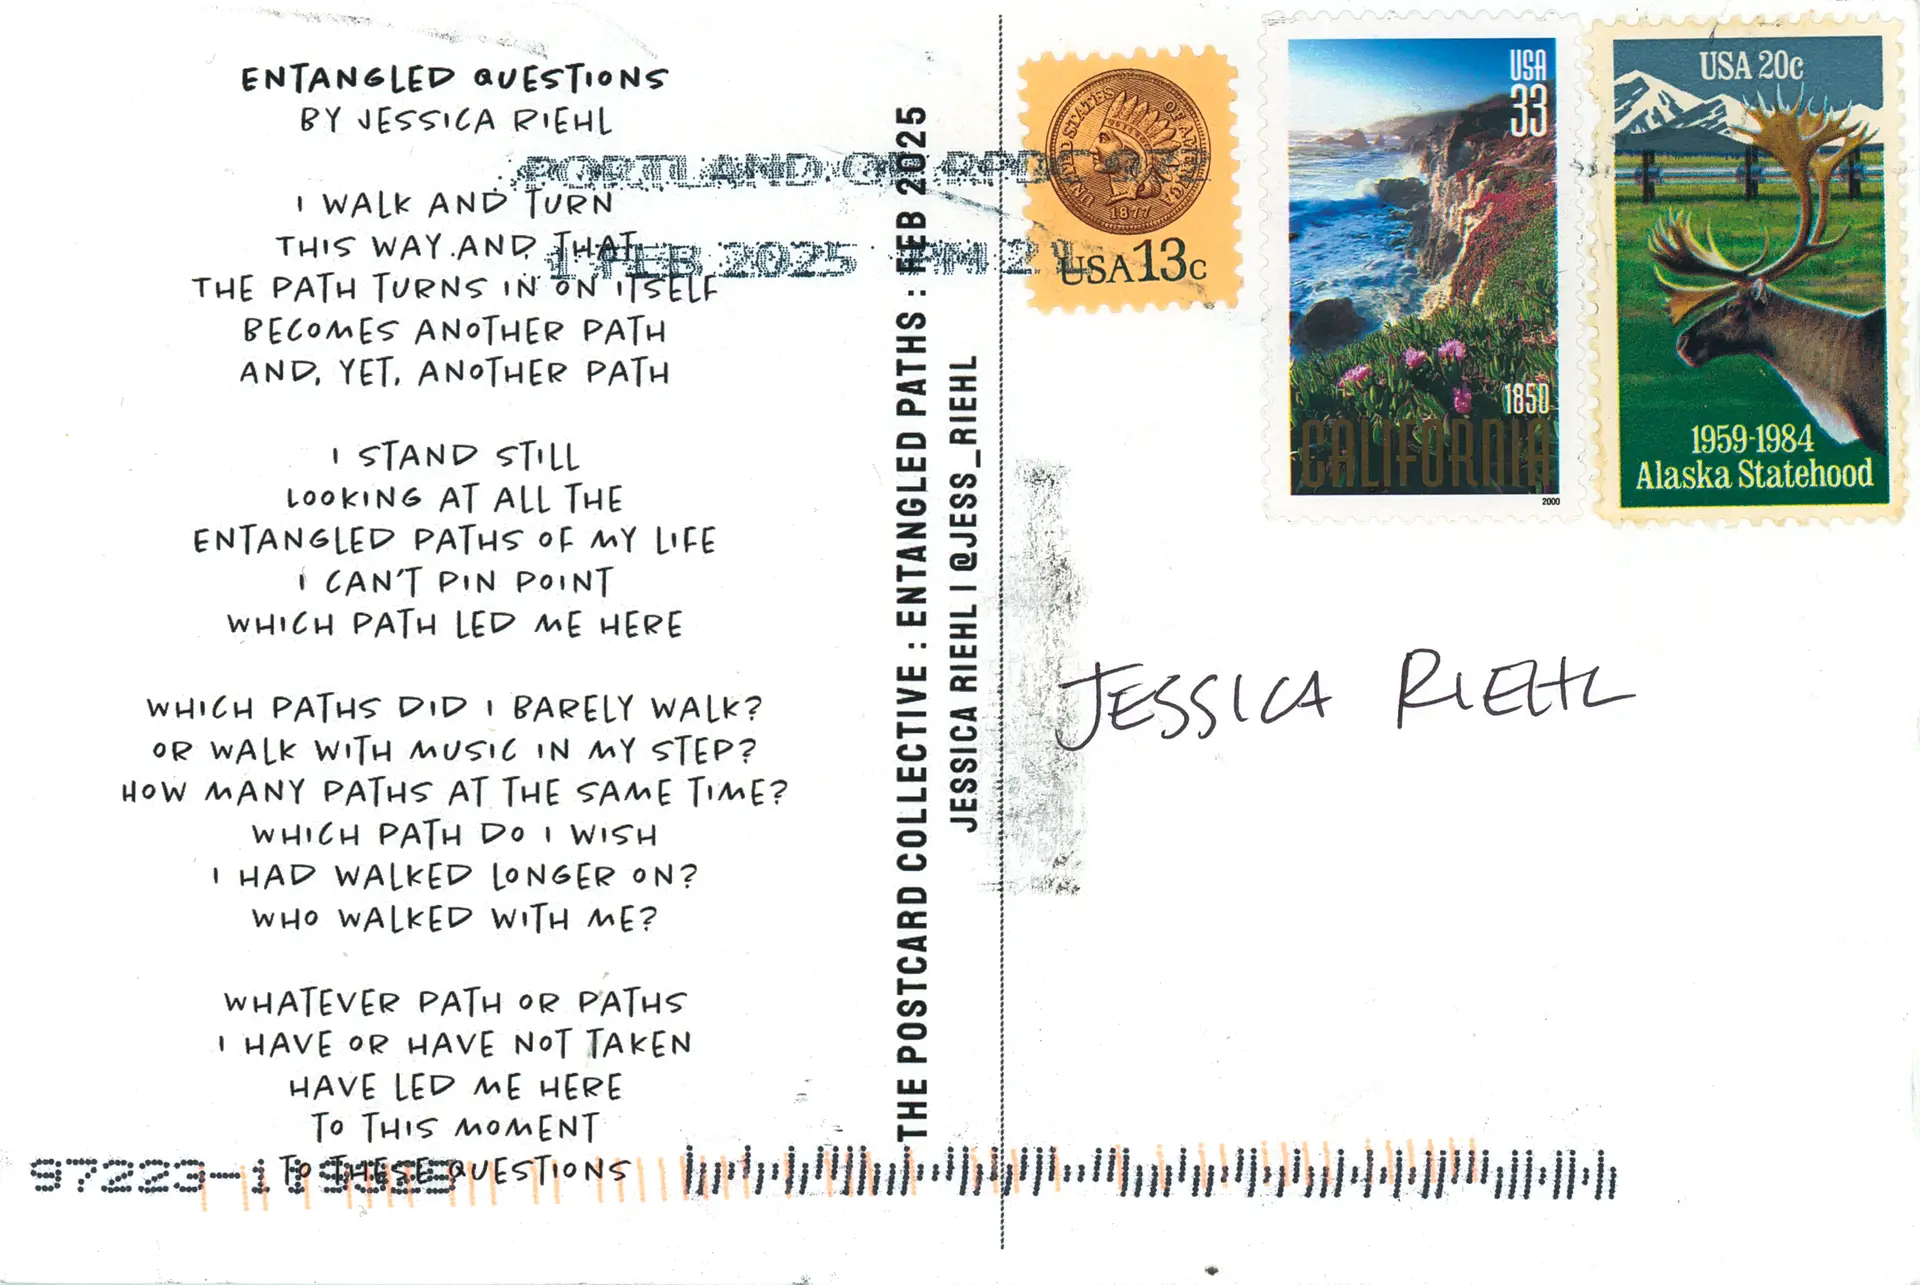 ENTANGLED QUESTIONS
BY JESSICA RIEHL
I WALK AND TURN
THIS WAY AND THAT
THE PATH TURNS IN ON ITSELF
BECOMES ANOTHER PATH
AND, YET, ANOTHER PATH
I STAND STILL
LOOKING AT ALL THE
ENTANGLED PATHS OF MY LIFE
I CAN'T PIN POINT
WHICH PATH LED ME HERE
WHICH PATHS DID I BARELY WALK?
OR WALK WITH MUSIC IN MY STEP?
HOW MANY PATHS AT THE SAME TIME?
WHICH PATH DO I WISH
I HAD WALKED LONGER ON?
WHO WALKED WITH ME?
WHATEVER PATH OR PATHS
I HAVE OR HAVE NOT TAKEN
HAVE LED ME HERE
TO THIS MOMENT
TO THESE QUESTIONS
97223-
PORTLAND OR
1 FEB 2025 PM 2 L
THE POSTCARD COLLECTIVE : ENTANGLED PATHS : FEB 2025
JESSICA RIEHL | @JESS_RIEHL
UNITED STATES OF AMERICA
1877
USA 13c
USA
33
1850
CALIFORNIA
2000
USA 20c
1959-1984
Alaska Statehood
JESSICA RIEHL